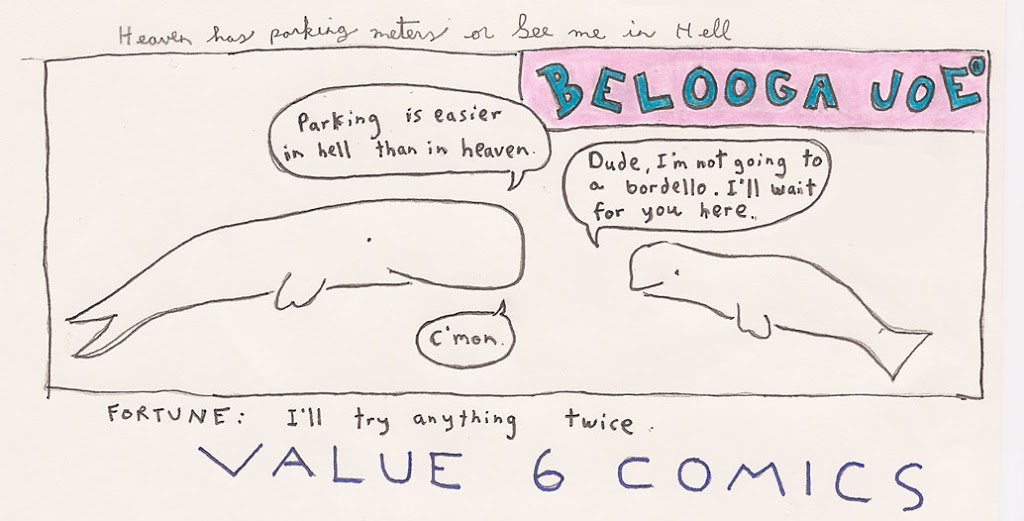 Heaven has parking meters or See me in Hell
BELOOGA JOE®
Parking is easier
in hell than in heaven.
Dude, I'm not going to
a bordello. I'll wait
for you here.
C'mon.
FORTUNE: I'll try anything twice.
VALUE 6 COMICS